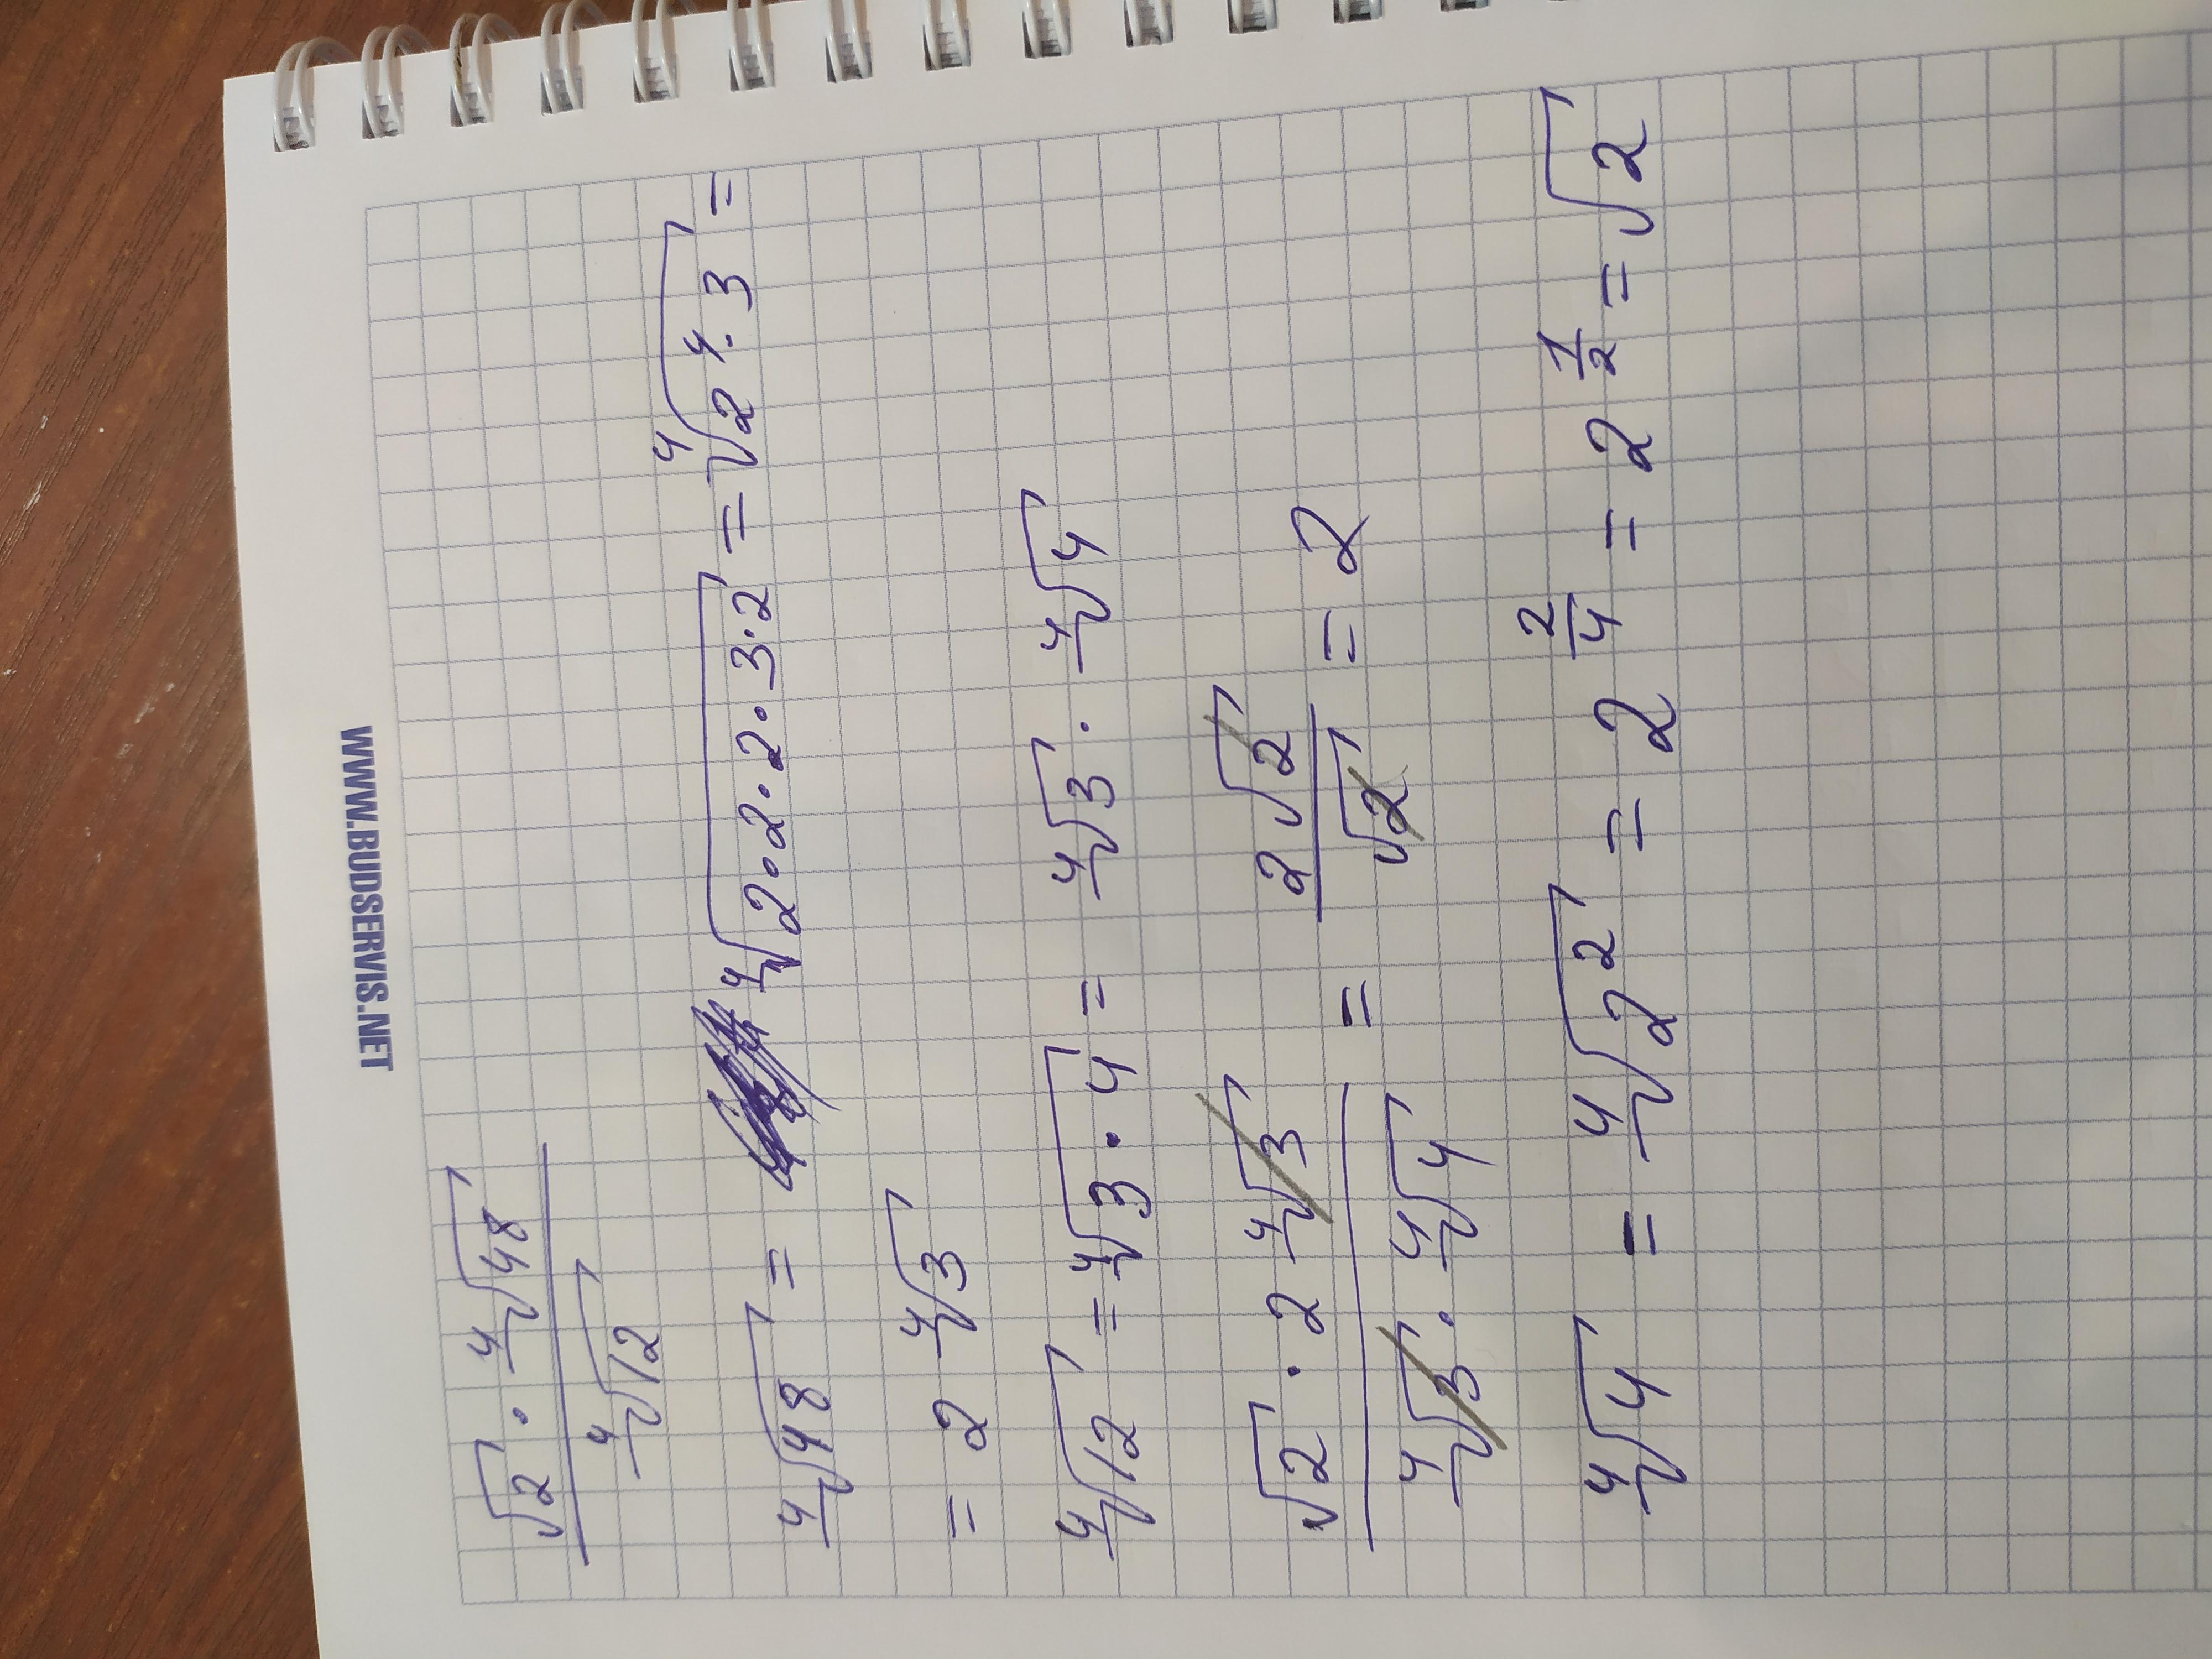 WWW.BUDSERVIS.NET
√2 · ⁴√48
⁴√12
⁴√48 = ⁴√2·2·2·3·2 = ⁴√2⁴·3 =
= 2 ⁴√3
⁴√12 = ⁴√3·4 = ⁴√3 · ⁴√4
√2 · 2 ⁴√3 / ⁴√3 · ⁴√4 = 2√2 / √2 = 2
⁴√4 = ⁴√2² = 2^(2/4) = 2^(1/2) = √2